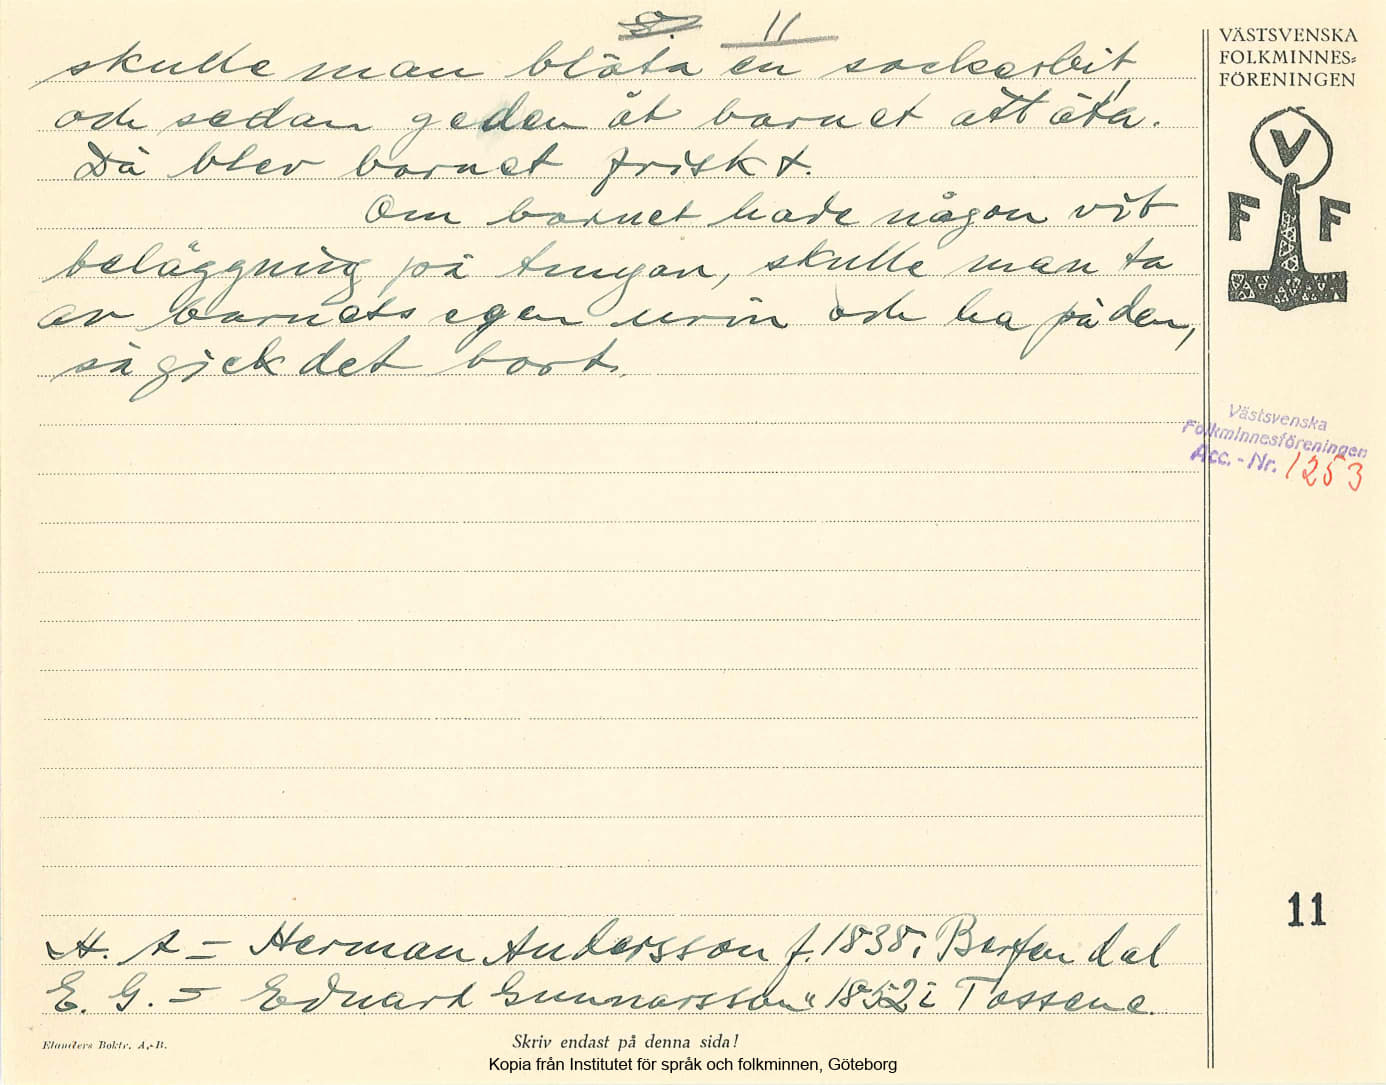 11
skulle man blöta en sockerbit,
och sedan ge den åt barnet att äta.
Då blev barnet friskt.
Om barnet hade någon vit
beläggning på tungan, skulle man ta
av barnets egen urin och ha på den,
så gick det bort.
H. A = Herman Andersson f. 1838 i Berfendal
E. G. = Eduard Gunnarsson " 1852 i Tossene.
Elanders Boktr. A.-B.
Skriv endast på denna sida!
Kopia från Institutet för språk och folkminnen, Göteborg
VÄSTSVENSKA
FOLKMINNES-
FÖRENINGEN
V
F F
Västsvenska
Folkminnesföreningen
Acc. - Nr. 1253
11